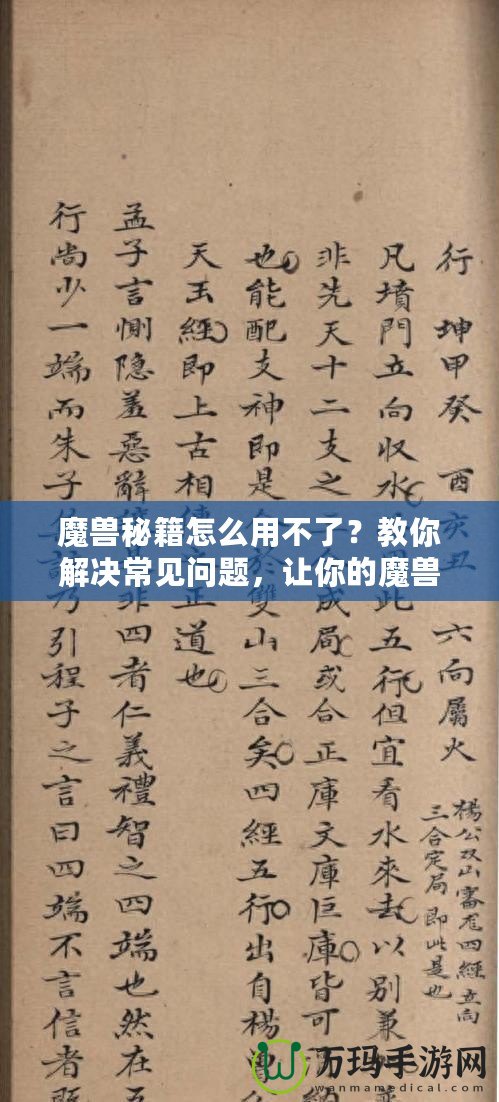 行 坤甲癸 酉亥丑 六向屬火
楊公双山審 四經立向
三合定局即此是也
凡墳門立向收水 此五行但宜看水來去以別兼
非先天十二支之 成局或合正庫文庫巨庫皆可
也能配支神即是 於雙山三合矣四經五行出自楊曾
天玉經即上古相 正道也
孟子言惻隐羞惡辭 非四者仁義禮智之四端也然在五
行尚少一端而朱子 乃引程子之言曰四端不言信者既
魔兽秘籍怎么用不了？教你
解决常见问题，让你的魔兽
万玛手游网
www.wanmamedical.com